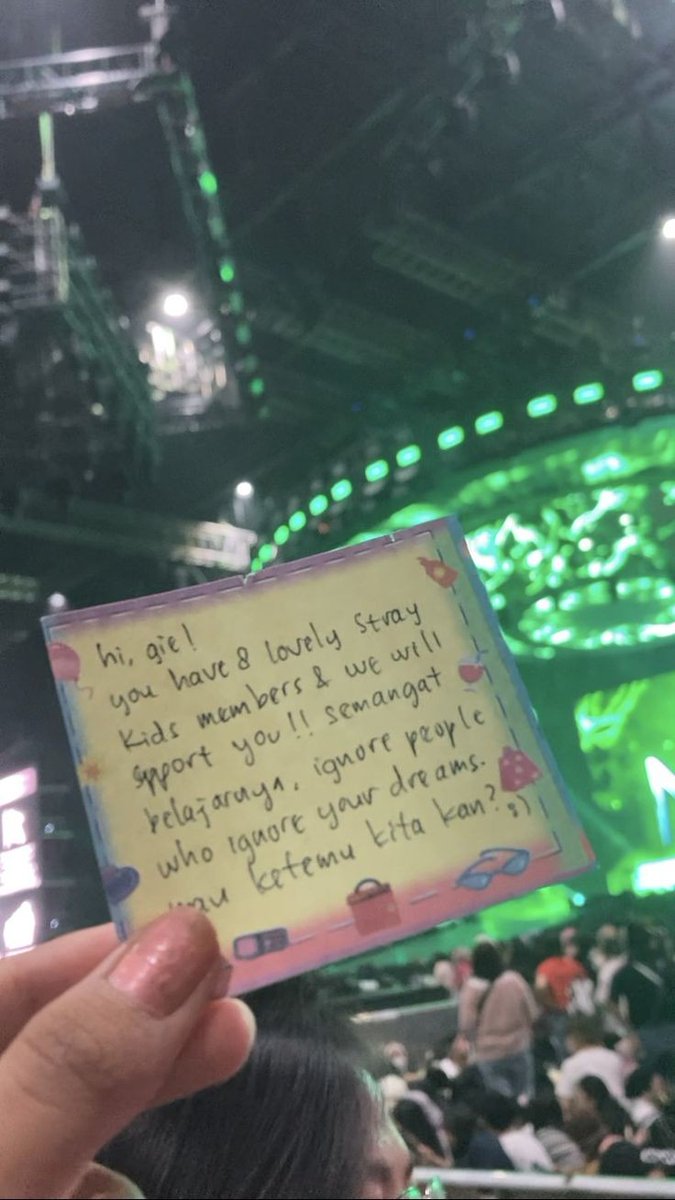 hi, gie!
you have 8 lovely Stray
Kids members & we will
spport you!! semangat
belajarnya, ignore people
who ignore your dreams.
mau ketemu kita kan? :)